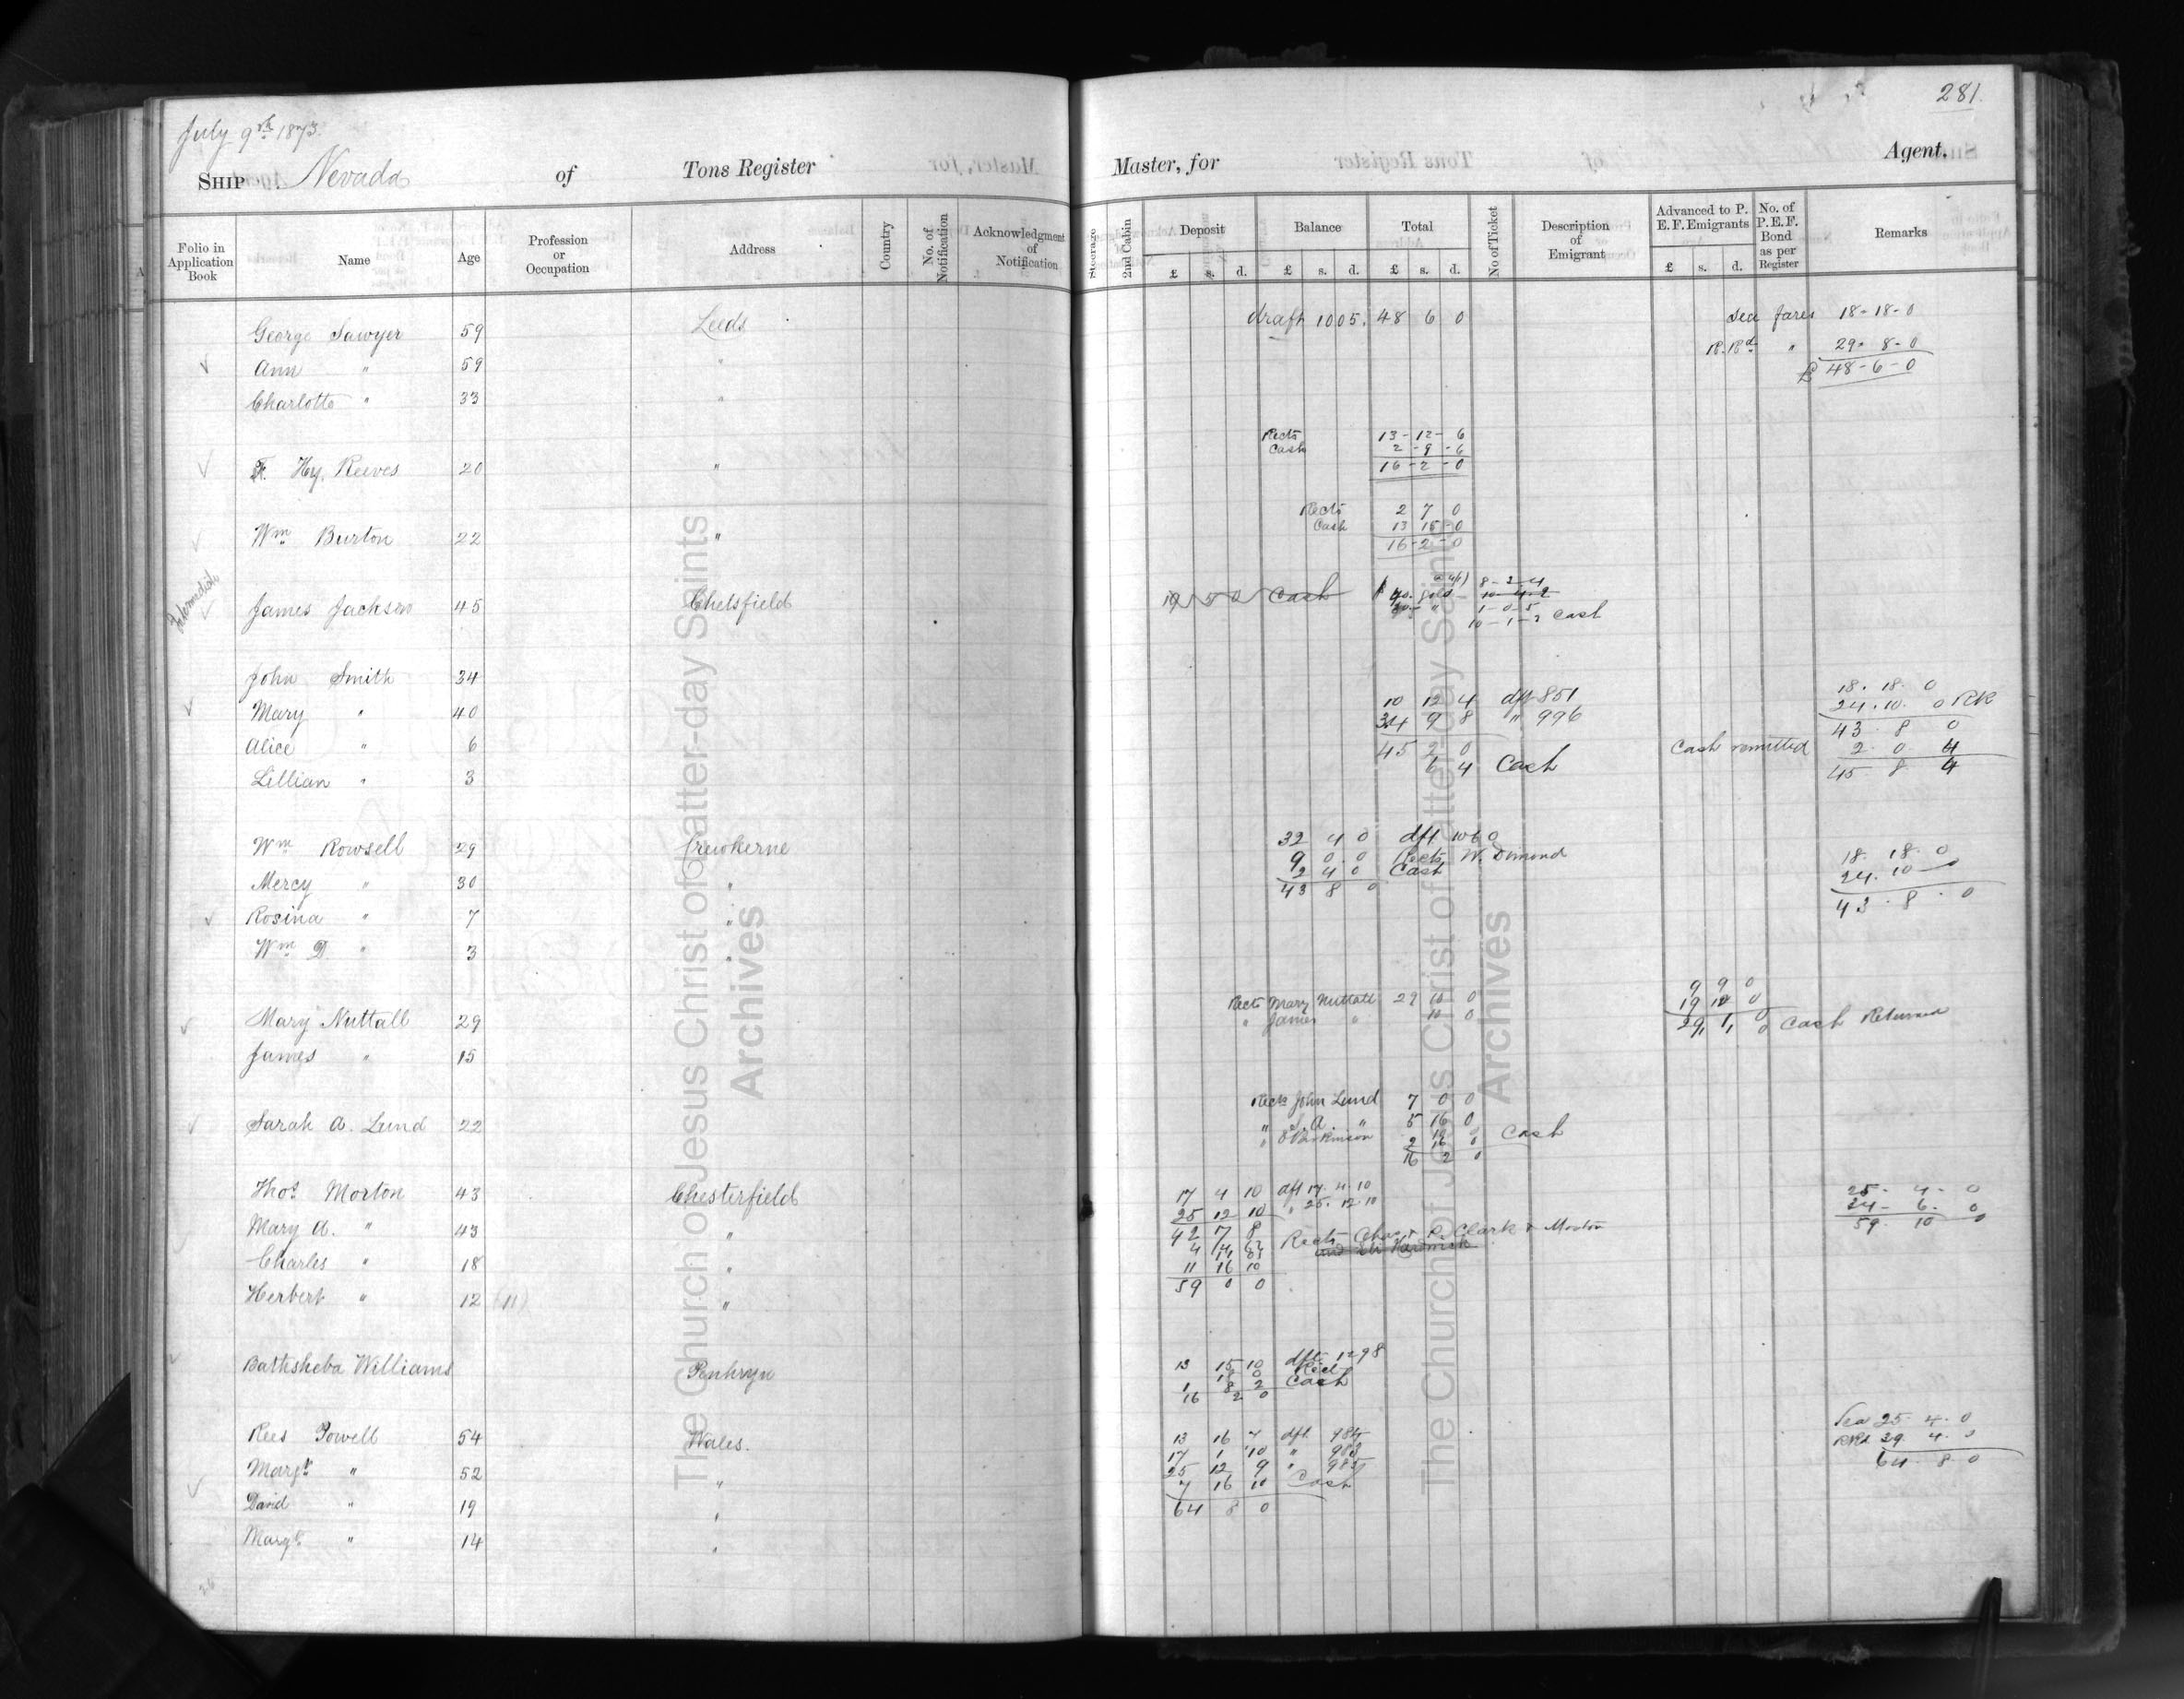 281
July 9th 1873.
SHIP Nevada of Tons Register Master, for Agent.
Folio in Application Book
Name
Age
Profession or Occupation
Address
Country
No. of Notification
Acknowledgment of Notification
Steerage
2nd Cabin
Deposit £ s. d.
Balance £ s. d.
Total £ s. d.
No of Ticket
Description of Emigrant
Advanced to P. E. F. Emigrants £ s. d.
No. of P. E. F. Bond as per Register
Remarks
George Sawyer 59 Leeds draft 1005. 48 6 0 Sea fares 18-18-0
Ann " 59 " R.Rd " 29-8-0
£ 48-6-0
Charlotte " 33 "
Rects 13-12-6
Cash 2-9-6
Hy. Reeves 20 " 16-2-0
Rects 2 7 0
Cash 13 15-0
Wm Burton 22 " 16-2-0
Intermediate
James Jackson 45 Chelsfield Cash
8-2-4
gold
1-0-5
10-1-2 Cash
John Smith 34
10 12 4 dft 851 18. 18. 0
Mary " 40 34 9 8 " 996 24. 10. 0 RR
43 8 0
Alice " 6 45 2 0 Cash remitted 2. 0. 4
6 4 Cash 45 8 4
Lillian " 3
Wm Rowsell 29 Crewkerne 32 4 0 dft 1060
9 0.0 Rects W. Dimond 18. 18. 0
2 4 0 Cash 24. 10
Mercy " 30 " 43 8 0 43. 8. 0
Rosina " 7 "
Wm D " 3 "
9 9 0
Rects Mary Nuttall 19 12 0
Mary Nuttall 29 " James " 10 0 29, 1, 0 Cash Returned
James " 15
Rects John Lund 7 0 0
Sarah A. Lund 22 " S. A. " 5 16 0
" Parkinson
2 16 0 Cash
16 2 0
Thos Morton 43 Chesterfield 17 4 10 dft 17. 4. 10 25. 4. 0
25 12 10 " 25. 12. 10 6. 0
Mary A. " 43 " 42 7 8 Rects Chas & R. Clark & Morton 59. 10 0
Charles " 18 " 11 16 10
59 0 0
Herbert " 12 (11) "
Bathsheba Williams Penhryn 13 15 10 dft 1298
Rect
1 8 2 Cash
16 2 0
Rees Powell 54 Wales. 13 16 7 dft 984 Sea 25. 4. 0
17 1 10 " 983 RRd 39. 4. 0
Margt " 52 " 25 12 9 " 985 64. 8 0
7 16 10 Cash
David " 19 " 64 8 0
Margt " 14 "
26
The Church of Jesus Christ of Latter-day Saints
Archives
The Church of Jesus Christ of Latter-day Saints
Archives